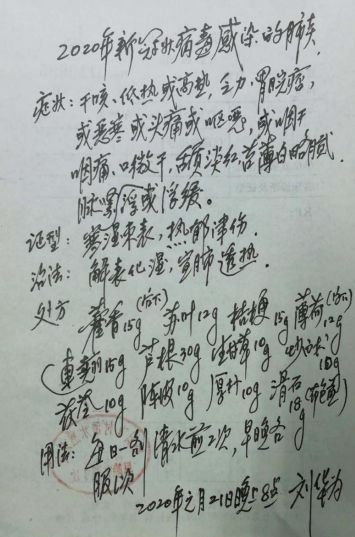 2020年新冠状病毒感染的肺炎
症状:干咳、低热或高热、乏力、胃脘痞,
或恶寒或头痛或呕恶,或咽干
咽痛、口微干,舌质淡红,苔薄白略腻,
脉濡浮或浮缓。
证型:寒湿束表,热郁津伤.
治法:解表化湿,宣肺透热.
处方
藿香15g(后下) 苏叶12g 桔梗15g 薄荷12g(后下)
连翘15g 芦根30g 生甘草10g 炒苍术10g
茯苓10g 陈皮10g 厚朴10g 滑石18g(布包煎)
用法:每日一剂 清水煎2次,早晚各
服1次
2020年元月21日晚 刘华为